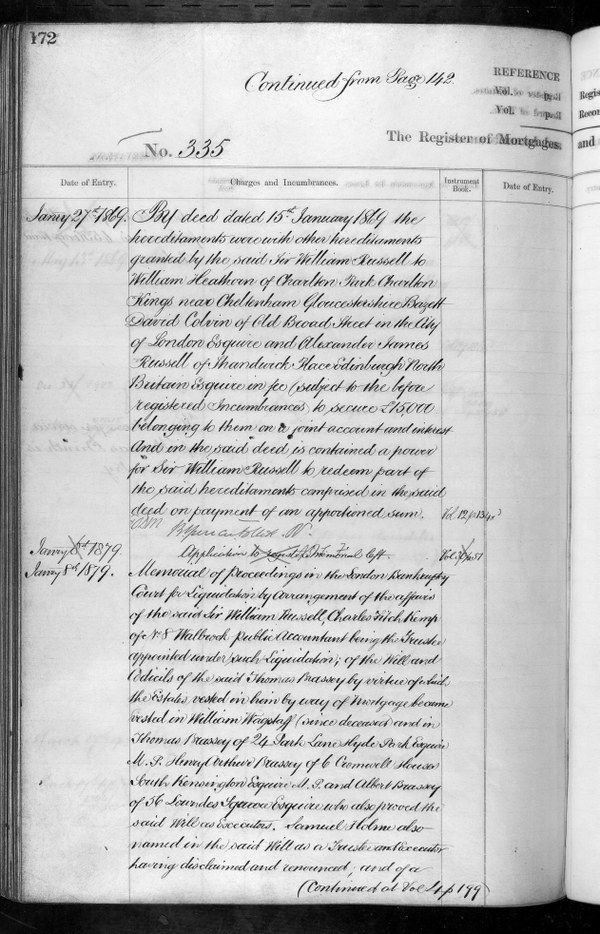 172
Continued from Page 142
REFERENCE
Vol. p.
Vol. p.
The Register of Mortgages.
No. 335
Regis
Recor
and
Date of Entry.
Charges and Incumbrances.
Instrument Book.
Date of Entry.
Janry 27th 1869.
By deed dated 15th January 1869 the
hereditaments were with other hereditaments
granted by the said Sir William Russell to
William Heathorn of Charlton Park Charlton
Kings near Cheltenham Gloucestershire Bazett
David Colvin of Old Broad Street in the City
of London Esquire and Alexander James
Russell of Shandwick Place Edinburgh North
Britain Esquire in fee (subject to the before
registered Incumbrances) to secure £15,000
belonging to them on a joint account and interest
And in the said deed is contained a power
for Sir William Russell to redeem part of
the said hereditaments comprised in the said
deed on payment of an apportioned sum.
Vol 12 p 134
Janry 8th 1879.
Application to register Memorial left
Vol p 51
Janry 8th 1879.
Memorial of proceedings in the London Bankruptcy
Court for Liquidation by Arrangement of the affairs
of the said Sir William Russell, Charles Fitch Kemp
of No 8 Walbrook Public Accountant being the Trustee
appointed under such Liquidation; of the Will and
Codicils of the said Thomas Brassey by virtue of which
the Estates vested in him by way of Mortgage became
vested in William Wagstaff (since deceased) and in
Thomas Brassey of 24 Park Lane Hyde Park Esquire
M. P. Henry Arthur Brassey of 6 Cromwell Houses
South Kensington Esquire M. P. and Albert Brassey
of 56 Lowndes Square Esquire who also proved the
said Will as Executors. Samuel Holme also
named in the said Will as a Trustee and Executor
having disclaimed and renounced; and of a
(Continued at Vol 4 p 199)